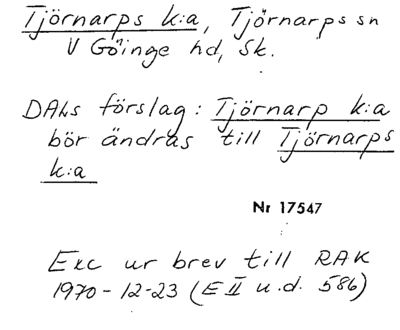 Tjörnarps k:a, Tjörnarps sn
V Göinge hd, Sk.
DALs förslag: Tjörnarp k:a
bör ändras till Tjörnarps
k:a
Nr 17547
Exc ur brev till RAK
1970-12-23 (E II u.d. 586)